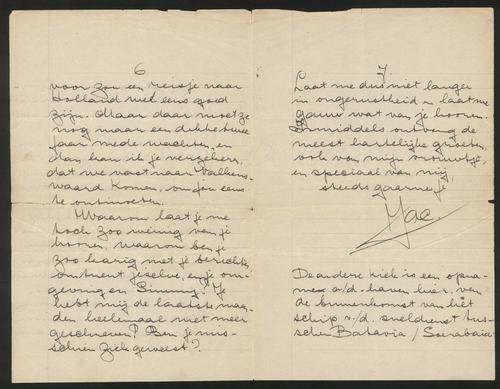 6
voor zoo een reisje naar
Holland wel eens goed
zijn. Maar daar moet ze
nog maar een dikke twee
jaar mede wachten, en
dan kan ik je verzekeren,
dat we vast naar Valkens-
waard komen, om jou eens
te ontmoeten.
Waarom laat je me
toch zoo weinig van je
hooren, waarom ben je
zoo karig met je berichten
omtrent jeselve, en je om-
geving en Simmy? Je
hebt mij de laatste maan-
den heelemaal niet meer
geschreven? Ben je mis-
schien ziek geweest?
7
Laat me dus niet langer
in ongerustheid en laat me
gauw wat van je hooren.
Inmiddels ontvang de
meest hartelijke groeten,
ook van mijn vrouwtje,
en speciaal van mij,
steeds gaarne je
Jac.
De andere kiek is een opna-
me a/d. haven hier, van
de binnenkomst van het
schip v./d. sneldienst tus-
schen Batavia / Soerabaia